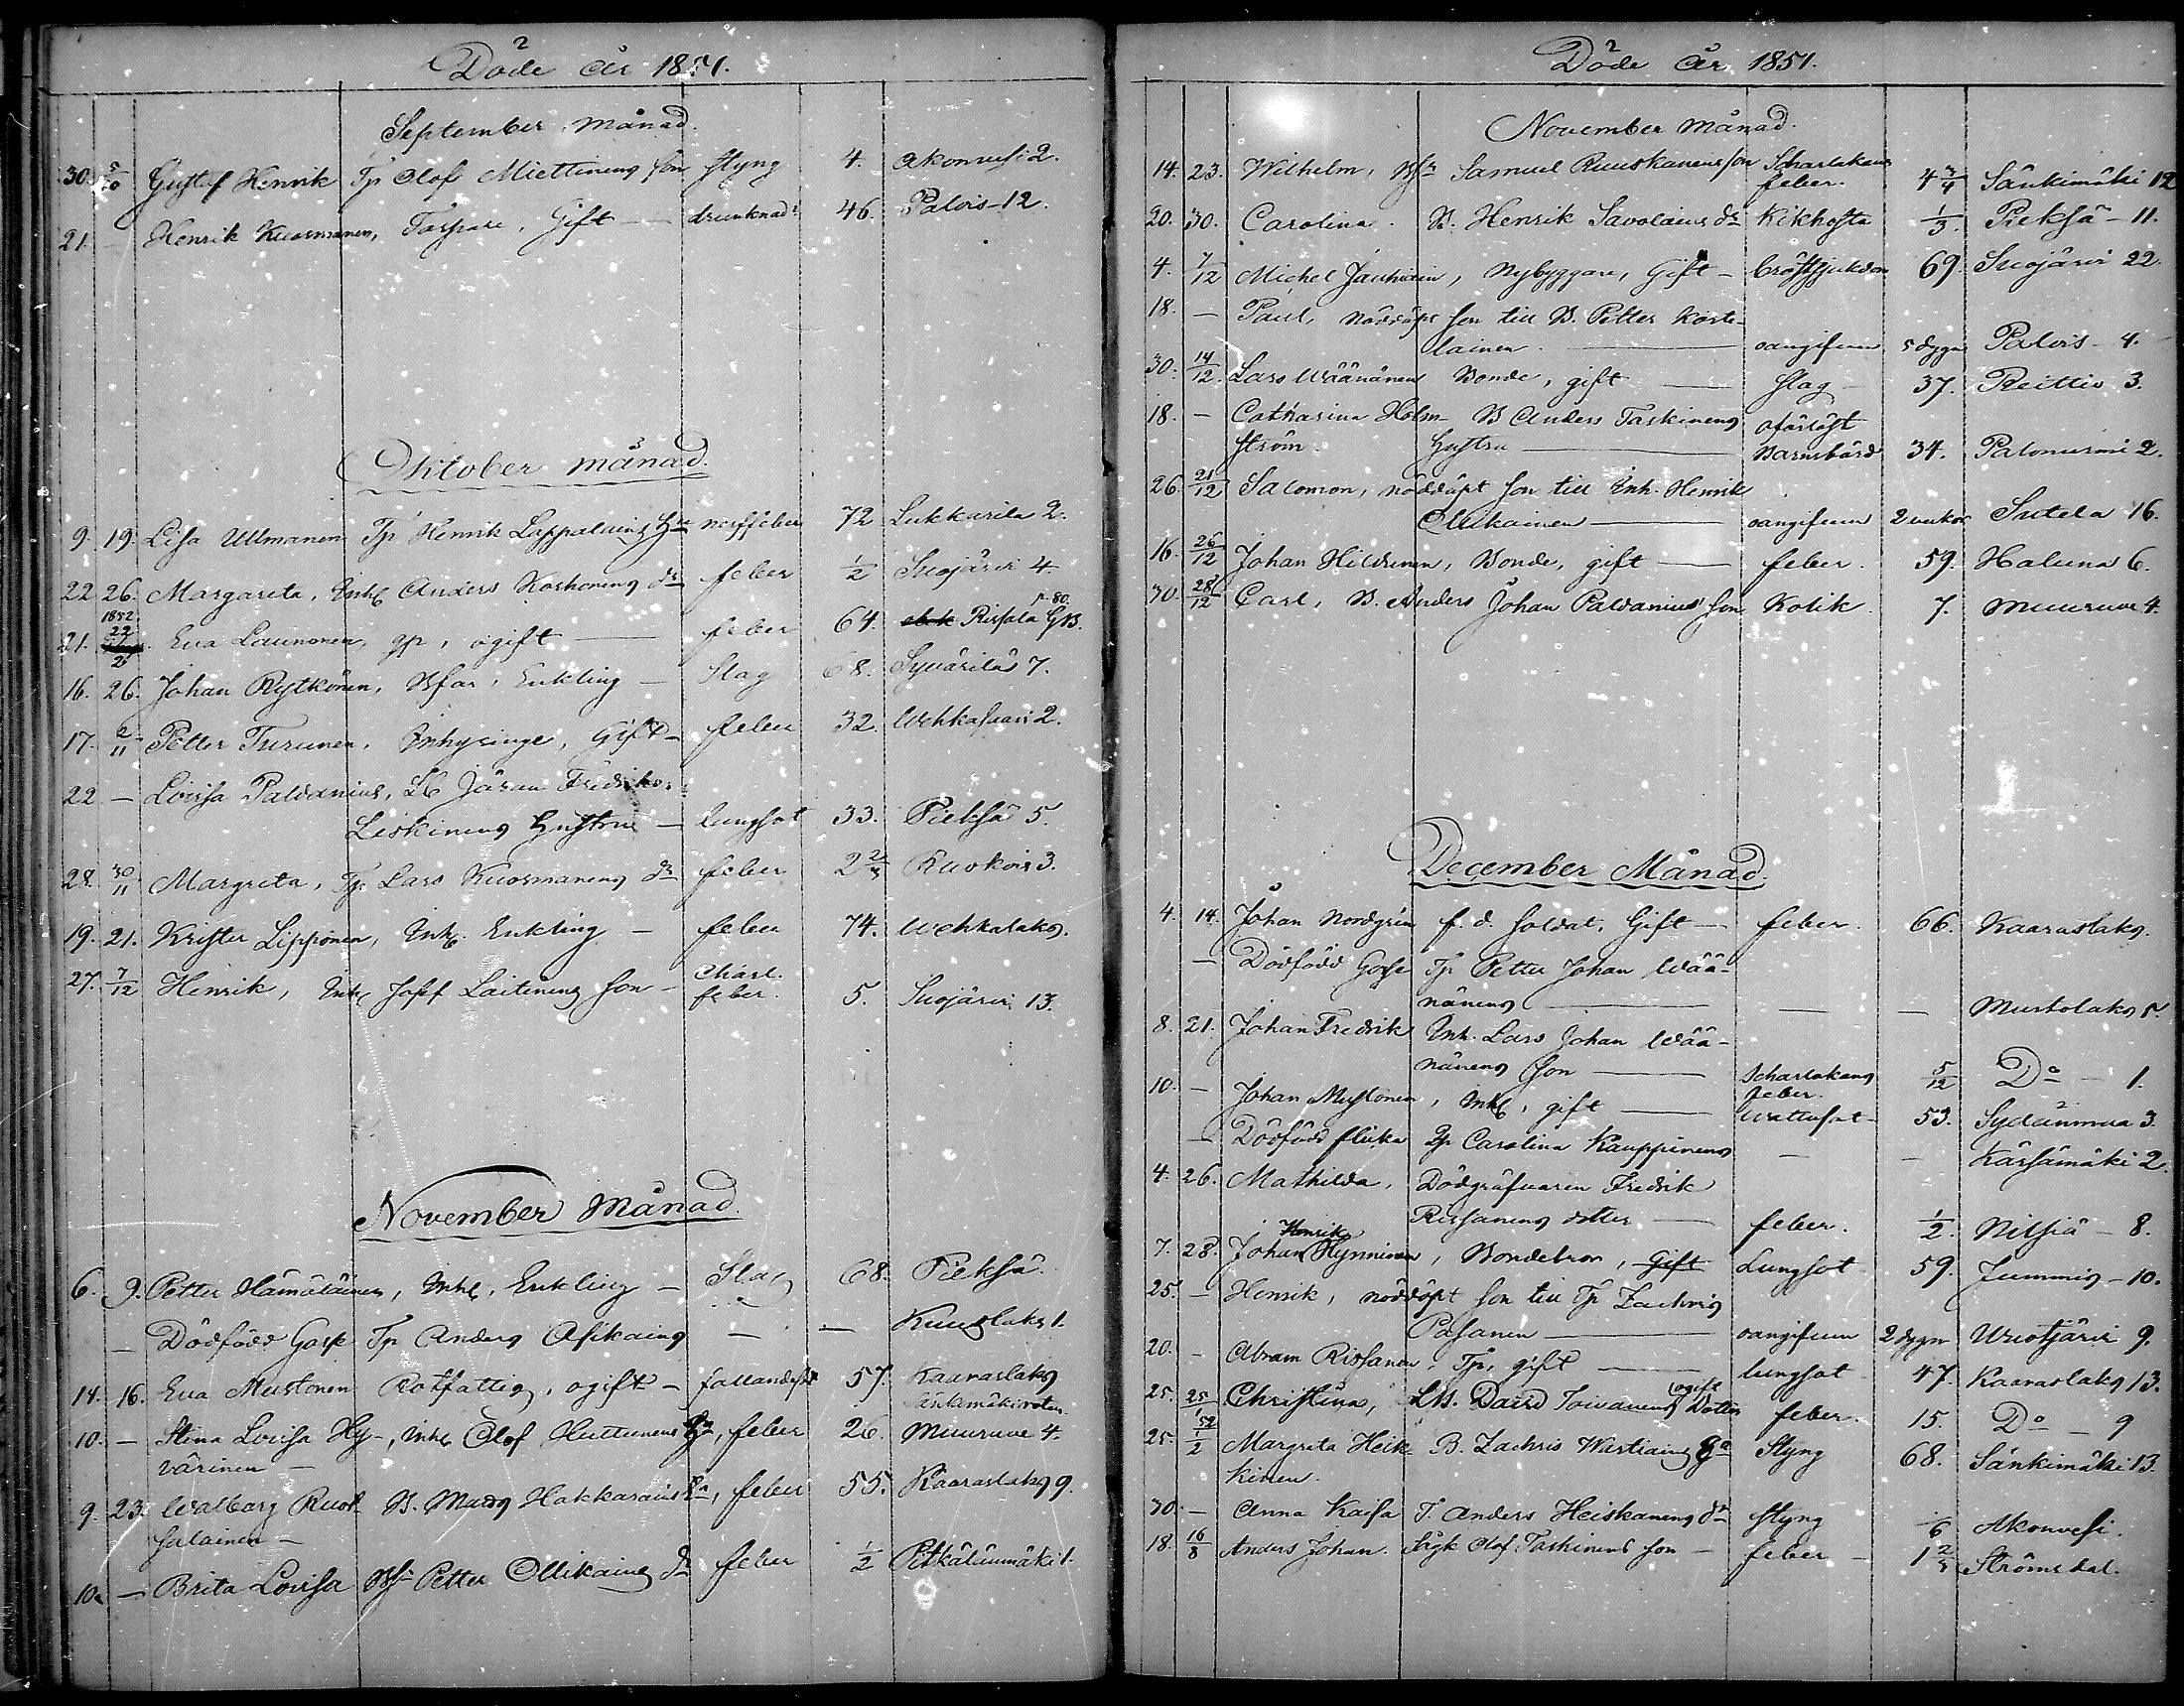 Döde år 1851.
September månad.
30. 5/10 Gustaf Henrik Tp Olof Miettinens son styng 4. Akonvesi 2.
21. — Henrik Kuosmanen, Torpare, Gift — drunknade 46. Palois 12.
Oktober månad.
9. 19. Lisa Ullmanen Tp Henrik Lappalains Hu nerffeber 72 Lukkarila 2.
22 26. Margareta, Inhs Anders Korhonens dr feber 1/2 Suojärvi 4.
1852 p. 80.
21. 22 Eva Launonen, gp, ogift — feber 64. Rissala GB.
16. 26. Johan Rytkönen, Bfar, Enkling — Slag 68. Syvärilä 7.
17. 2/11 Petter Turunen, Inhysinge, Gift — feber 32. Wehkasuari 2.
22 — Lovisa Paldanius, Lb Jöran Fredrik
Leskinens hustru — lungsot 33. Pieksä 5.
28. 30/11 Margreta, Tp Lars Kuosmanens dr feber 2 2/3 Ruokois 3.
19. 21. Krister Lipponen, Inhs Enkling — feber 74. Wehkalaks.
27. 7/12 Henrik, Inhs Josef Laitinens son — Charl. feber. 5. Suojärvi 13.
November Månad.
6. 9. Petter Hämäläinen, Inhs, Enkling — Slag 68. Pieksä
— Dödfödd Gosse Tp Anders Asikains — — Kuuslaks 1.
14. 16. Eva Mustonen Rotfattig, ogift — fallandesot 57. Kaaraslaks
Sänkimäki roten.
10. — Stina Lovisa Hy-, Inhs Olof Huttunens Hu, feber 26. Muuruve 4.
värinen —
9. 23. Walborg Ruot B. Mads Hakkarains Ea, feber 55. Kaaraslaks 9.
salainen —
10. — Brita Lovisa Bfr Petter Ollikains dr feber 1/2 Pitkälänmäki 1.
Döde år 1851.
November månad.
14. 23. Wilhelm, Bfr Samuel Ruuskanens son Scharlakans
feber. 4 3/4 Sänkimäki 12
20. 30. Carolina. B. Henrik Savolains dr Kikhosta 1/3. Pieksä — 11.
4. 7/12 Michel Jauhiain, Nybyggare, Gift — bröstsjukdom 69. Suojärvi 22.
18. — Paul, nöddöpt son till B. Petter Korte-
lainen — oangifven 5 dygn Palois — 4.
30. 14/12. Lars Wäänänen Bonde, gift — slag — 37. Reittio 3.
18. — Catharina Holm- B Anders Taskinens oförlöst
ström. hustru — Barnsbörd 34. Palonurmi 2.
26. 21/12 Salomon, nöddöpt son till Inh. Henrik
Ollikainen — oangifven 2 veckor Sutela 16.
16. 26/12 Johan Hildunen, Bonde, gift — feber. 59. Haluna 6.
30. 28/12 Carl, B. Anders Johan Paldanius son Kolik. 7. Muuruve 4.
December Månad.
4. 14. Johan Nordgrén f. d. soldat, Gift — feber. 66. Kaaraslaks.
— Dödfödd Gosse Tp Petter Johan Wää-
nänens — — — Mustolaks 5.
8. 21. Johan Fredrik Inh. Lars Johan Wää-
nänens son — Scharlakans feber. 5/12 Do — 1.
10. — Johan Mustonen, Inhs, gift — Wattusot 53. Sydänmaa 3.
— Dödfödd flicka Qp Carolina Kauppinens — — Kärsämäki 2.
4. 26. Mathilda, Dödgräfvaren Fredrik
Rissanens dotter — feber. 1/2. Nilsiä — 8.
Henrik
7. 28. Johan Hynninen, Bondebror, Gift Lungsot 59. Jumminis — 10.
25. — Henrik, nöddöpt son till Tp Zachris
Pasanen — oangifven 2 dygn Wuotjärvi 9.
20. — Abram Rissanen, Tp, gift — lungsot 47. Kaaraslaks 13.
25. 25/1 52 Christina, LB. David Toivanens ogift Dotter feber. 15. Do — 9
25. 1/2 Margreta Heik B. Zachris Wartiains Ea Styng 68. Sänkimäki 13.
kinen.
30. — Anna Kaisa T. Anders Heiskanens dr Styng 1/6 Akonvesi.
18. 16/8 Anders Johan. Sågk Olof Taskinens son — feber — 1 2/3 Strömsdal.